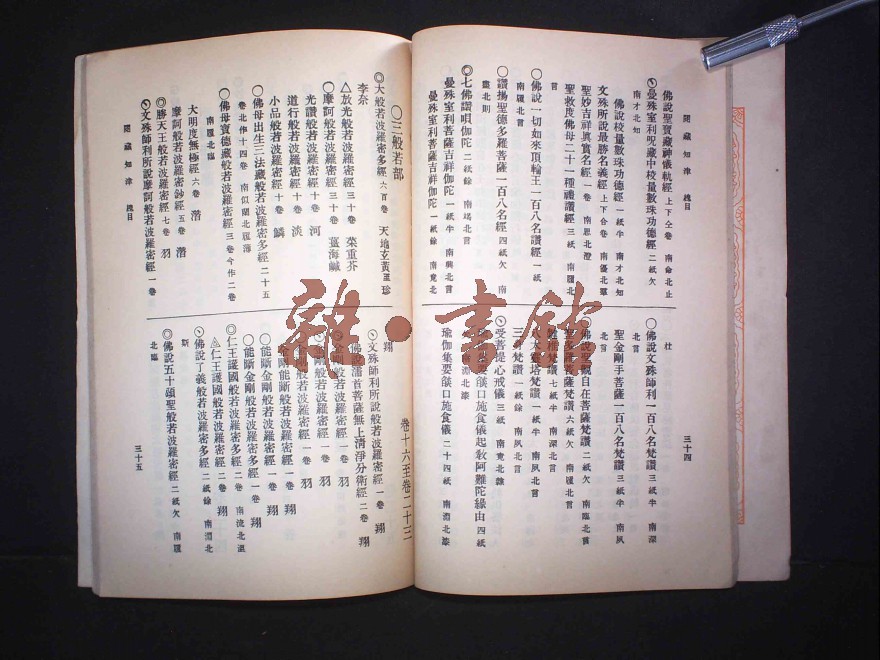 閱藏知津 總目
三十四
佛說聖寶藏神儀軌經 上下仝卷 南命北止
◎曼殊室利呪藏中校量數珠功德經 二紙欠
南才北知
佛說校量數珠功德經 一紙牛 南才北知
文殊所說最勝名義經 上下合卷 南優北
聖妙吉祥眞實名經 一卷 南思北澄
聖救度佛母二十一種禮讚經 三紙
○佛說一切如來頂輪王一百八名讚經 一紙
○讚揚聖德多羅菩薩一百八名經 四紙欠 南
畫北則
七佛讚唄伽陀 二紙餘 南 北言
曼殊室利菩薩吉祥伽陀 一紙牛 南興北言
曼殊室利菩薩吉祥伽陀 一紙餘
○佛說文殊師利一百八名梵讚 三紙牛 南深
北言
聖金剛手菩薩一百八名梵讚 三紙牛 南夙
北言
佛說聖觀自在菩薩梵讚 二紙欠 南臨北言
聖多羅菩薩梵讚 六紙欠
梵讚 七紙牛 南深北言
大靈塔梵讚 一紙牛 南夙北言
三 梵讚 一紙餘 南夙北言
受菩提心戒儀 三紙
燄口施食儀起敎阿難陀緣由 四紙
瑜伽集要燄口施食儀 二十四紙 南淵北漆
○三般若部
卷十六至卷二十三
◎大般若波羅密多經 六百卷 天地玄黃至珍
李奈
△放光般若波羅密經 三十卷 菜重芥
摩訶般若波羅密經 三十卷 薑海鹹
光讚般若波羅密經 十卷 河
道行般若波羅密經 十卷 淡
小品般若波羅密經 十卷 鱗
○佛母出生三法藏般若波羅密多經 二十五
卷北作十四卷 南似蘭北履薄
○佛母寶德藏般若波羅密經 三卷今作二卷
南 北臨
大明度無極經 六卷 潛
摩訶般若波羅密鈔經 五卷 潛
◎勝天王般若波羅密經 七卷 羽
文殊師利所說摩訶般若波羅密經 一卷
翔
文殊師利所說般若波羅密經 一卷 翔
佛說濡首菩薩無上清淨分衛經 二卷 翔
金剛般若波羅密經 一卷 羽
金剛般若波羅密經 一卷 羽
金剛般若波羅密經 一卷 羽
金剛能斷般若波羅密經 一卷 翔
○能斷金剛般若波羅密經 一卷 翔
○能斷金剛般若波羅密多經 一卷 翔
◎仁王護國般若波羅密多經 二卷 南流北溫
△仁王護國般若波羅密經 二卷 翔
佛說了義般若波羅密多經 二紙餘 南淵北
斯
◎佛說五十頌聖般若波羅密經 二紙欠
北臨
閱藏知津 總目
三十五
雜·書館